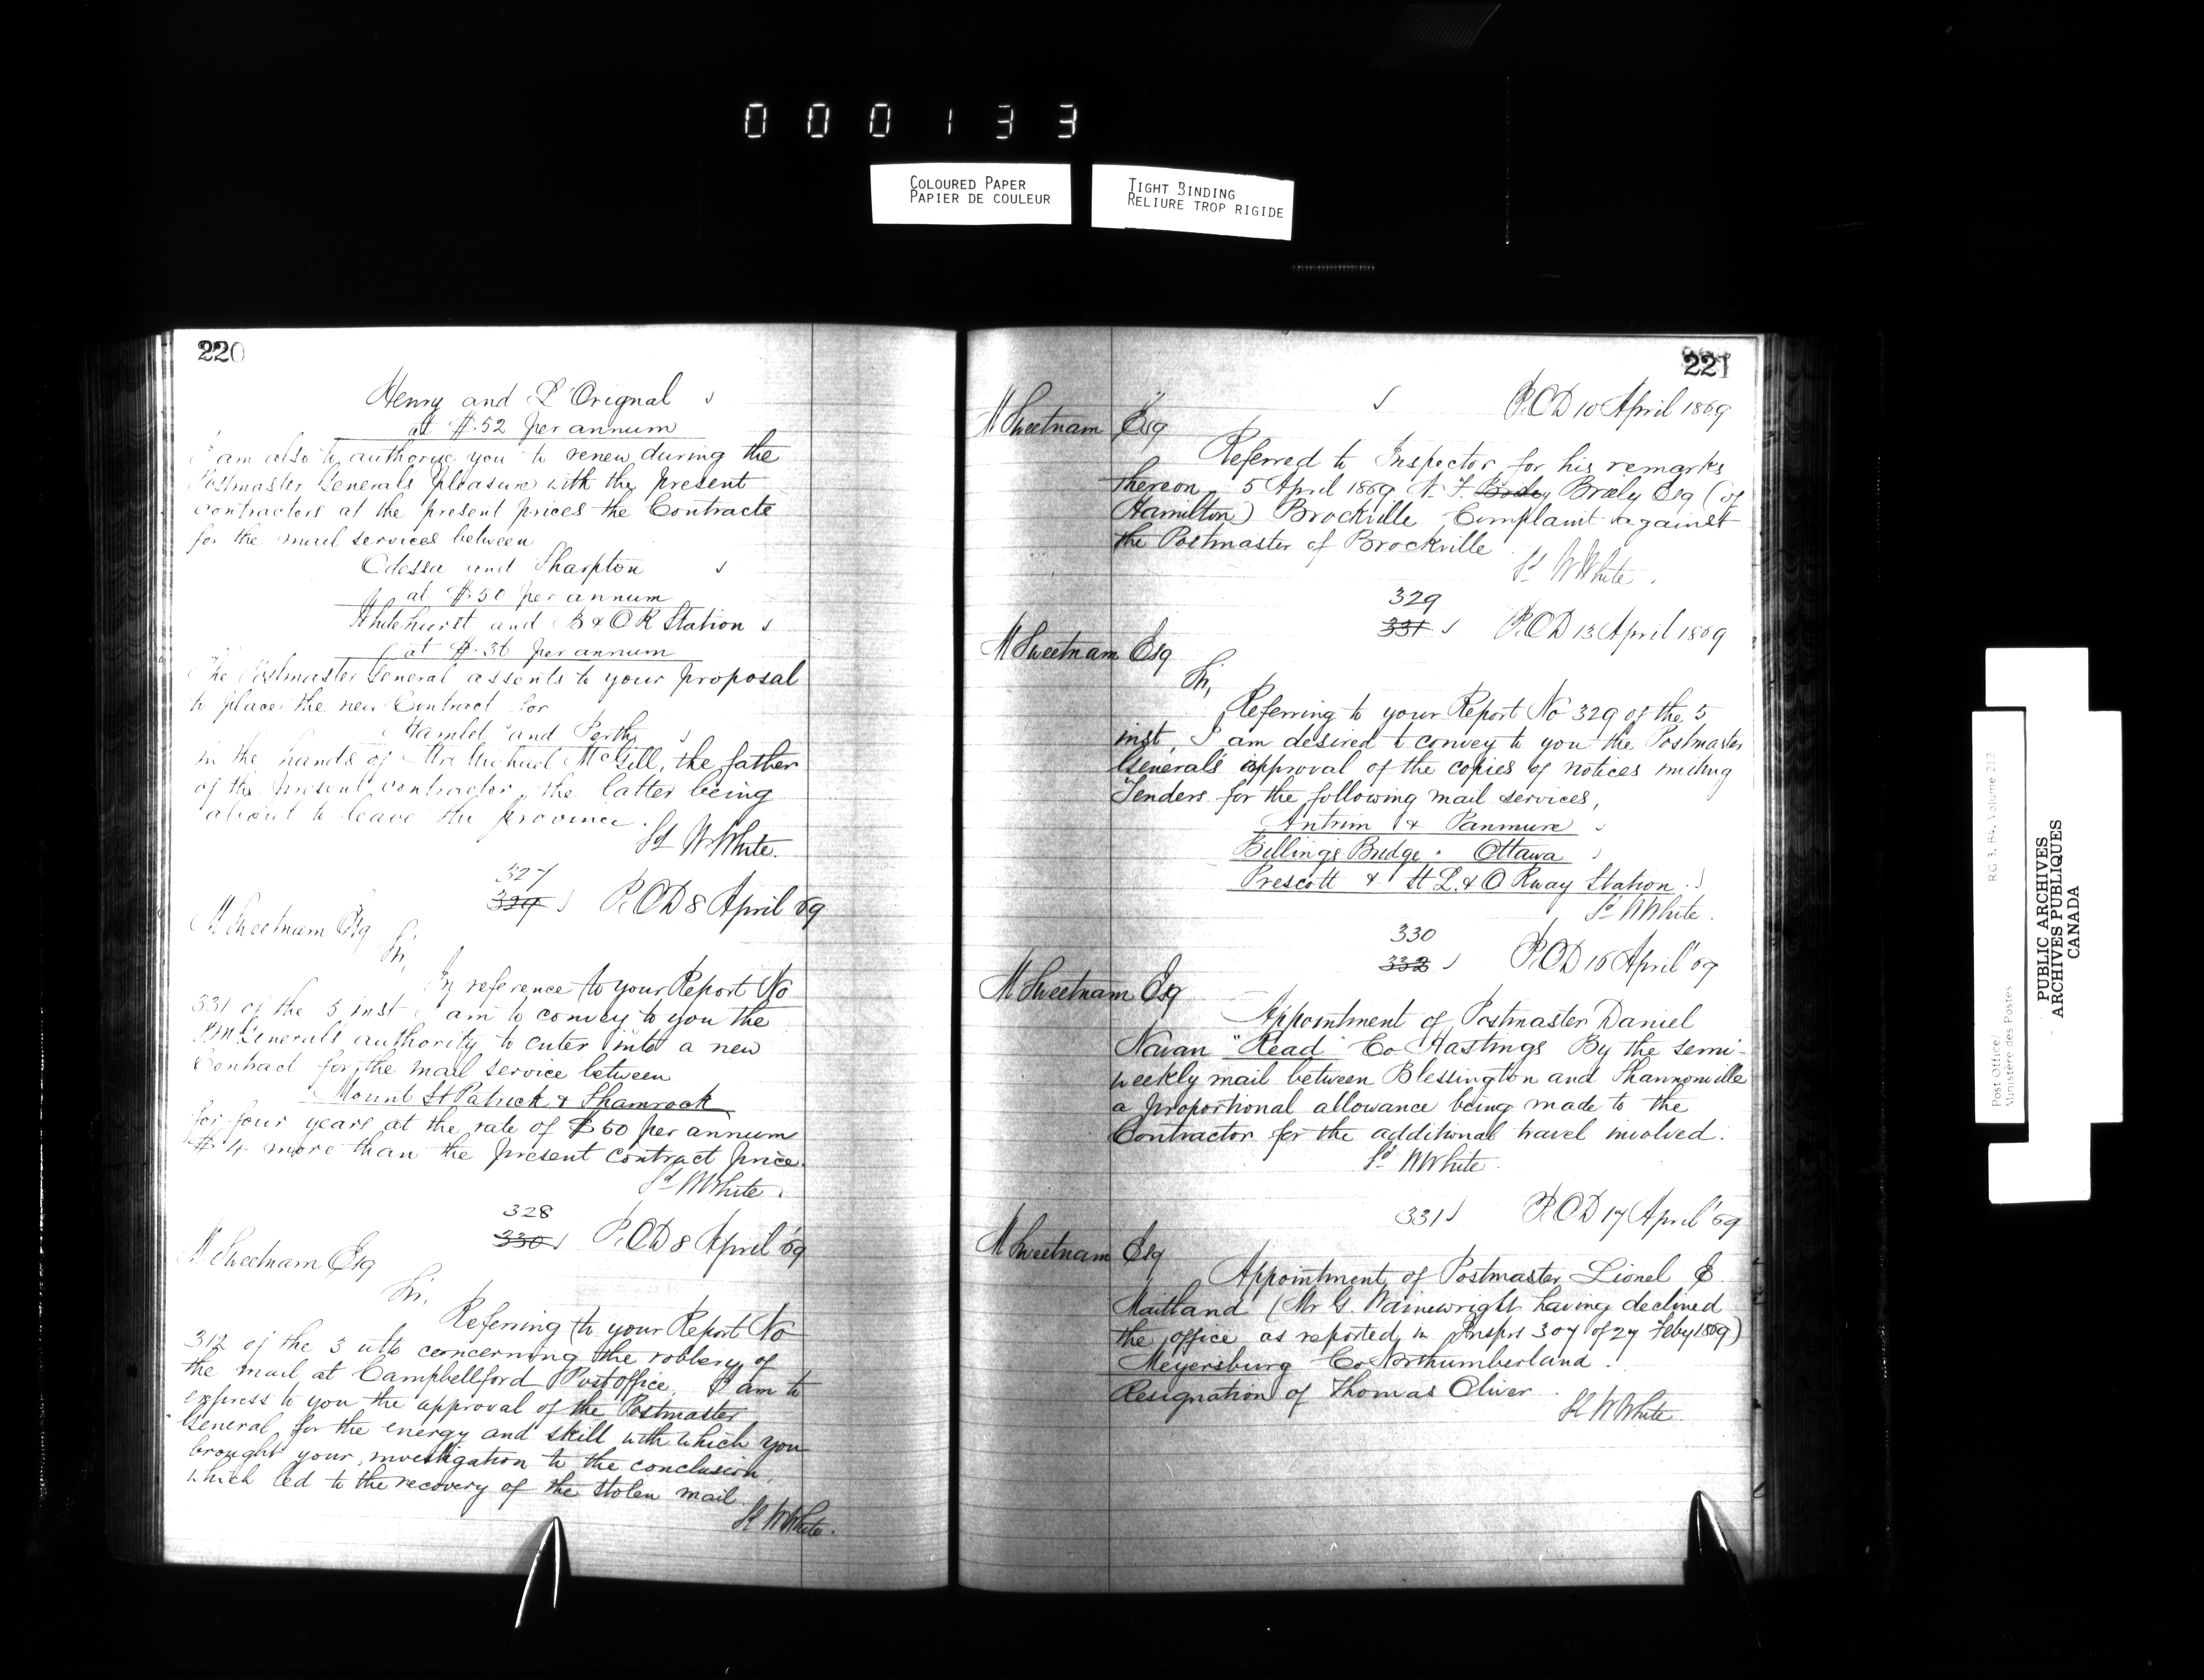 000133
COLOURED PAPER
PAPIER DE COULEUR
TIGHT BINDING
RELIURE TROP RIGIDE
220
Henry and L'Orignal
at $.52 per annum
I am also to authorize you to renew during the
Postmaster Generals pleasure with the present
contractors at the present prices the Contracts
for the mail services between
Odessa and Sharpton
at $.50 per annum
Whitehurst and B & O R Station
at $.36 per annum
The Postmaster General assents to your proposal
to place the new Contract for
Hamlet and Perth
in the hands of Mr Michael McGill, the father
of the present contractor, the latter being
about to leave the province.
Sd W White.
327
329 P.O.D 8 April 69
M Sweetnam Esq
Sir,
In reference to your Report No
331 of the 5 inst I am to convey to you the
PM Generals authority to enter into a new
Contract for the mail service between
Mount St Patrick & Shamrock
for four years at the rate of $60 per annum
$4 more than the present contract price.
Sd W White.
328
330 P.O.D 8 April 69
M Sweetnam Esq
Sir,
Referring to your Report No
312 of the 3 ulto concerning the robbery of
the mail at Campbellford Post office, I am to
express to you the approval of the Postmaster
General for the energy and skill with which you
brought your investigation to the conclusion,
which led to the recovery of the stolen mail
Sd W White.
221
P.O.D 10 April 1869
M Sweetnam Esq
Referred to Inspector for his remarks
thereon 5 April 1869 Esq (of
Hamilton) Brockville Complaint against
the Postmaster of Brockville
Sd W White.
329
331 P.O.D 13 April 1869
M Sweetnam Esq
Sir,
Referring to your Report No 329 of the 5
inst, I am desired to convey to you the Postmaster
Generals approval of the copies of notices inviting
Tenders for the following mail services,
Antrim & Panmure
Billings Bridge . Ottawa
Prescott & St L. & O Rway Station.
Sd W White.
330
332 P.O.D 16 April 69
M Sweetnam Esq
Appointment of Postmaster Daniel
"Read" Co Hastings By the semi-
weekly mail between Blessington and Shannonville
a proportional allowance being made to the
Contractor for the additional travel involved.
Sd W White.
331 P.O.D 17 April 69
M Sweetnam Esq
Appointment of Postmaster Lionel E.
Maitland (Mr G. Wainewright having declined
the office as reported in Insprs 307 of 27 Feby 1869)
Meyersburg Co Northumberland.
Resignation of Thomas Oliver.
Sd W White.
Post Office/
Ministère des Postes
RG 3, B4, Volume 212
PUBLIC ARCHIVES
ARCHIVES PUBLIQUES
CANADA